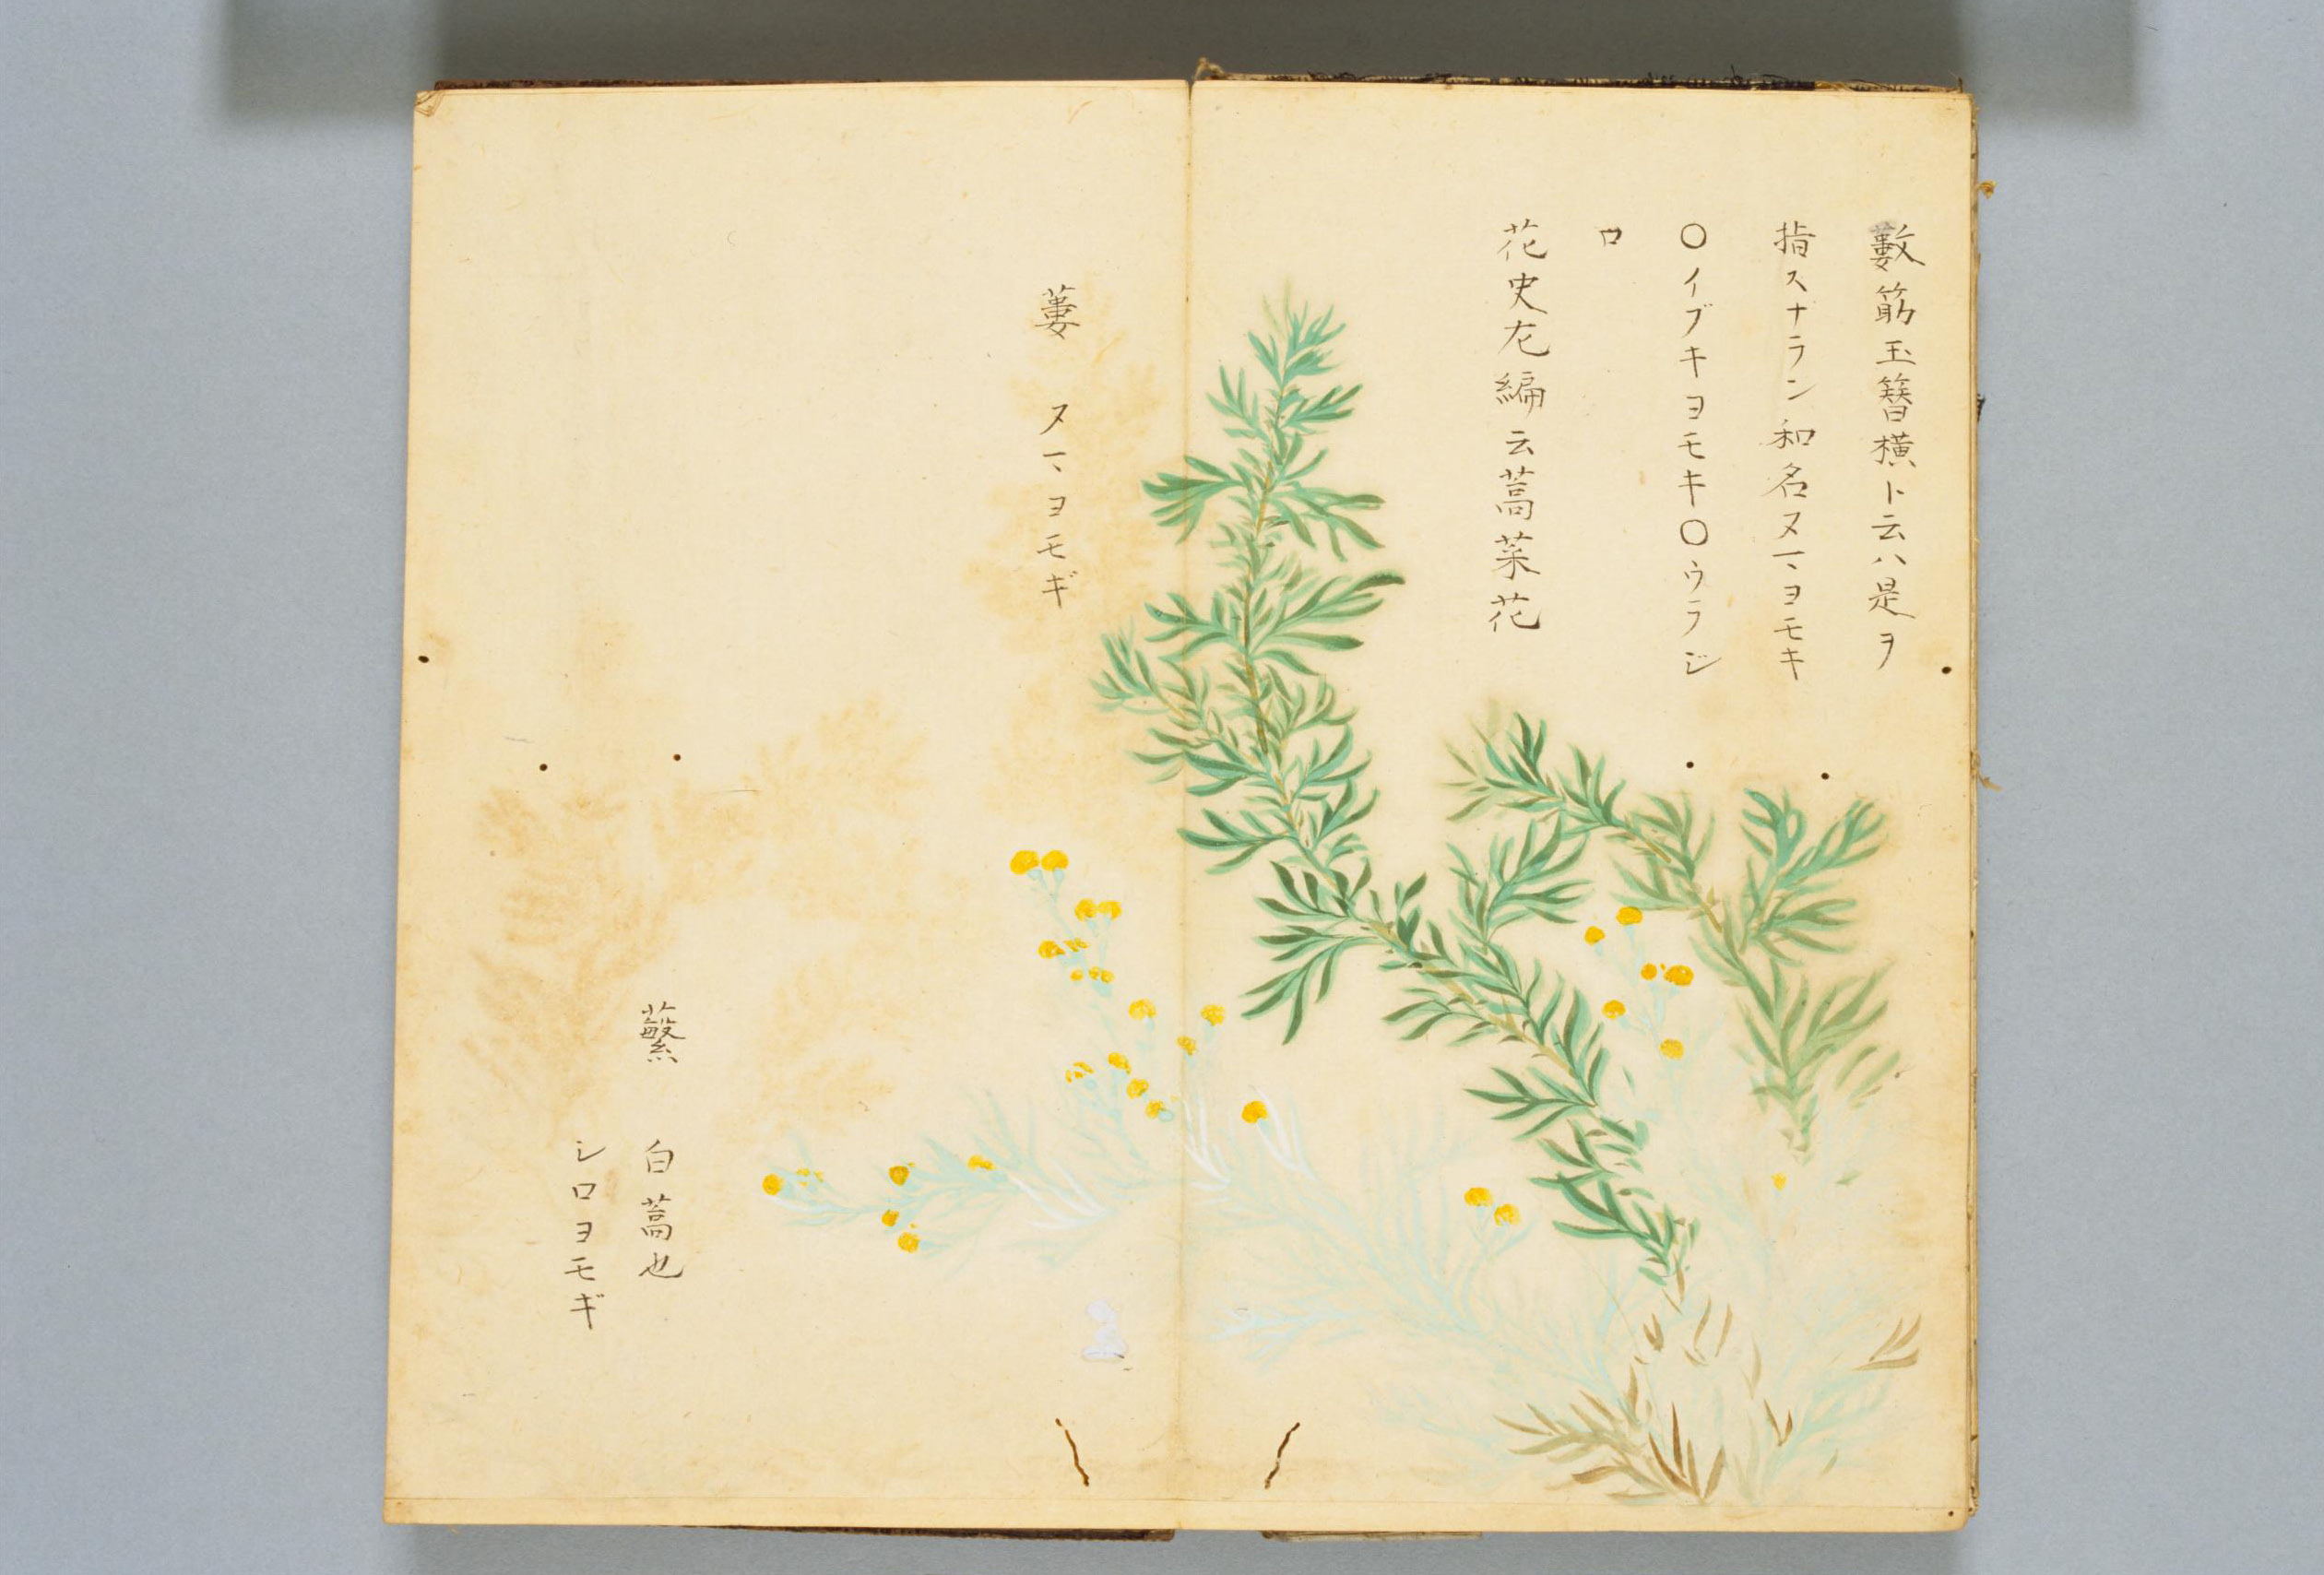 數筋玉簪横ト云ハ是ヲ
指スナラン和名ヌマヨモキ
〇イブキヨモキ〇ウラジ
ロ
花史左編云蒿菜花
蔞 ヌマヨモギ
蘩 白蒿也
シロヨモギ